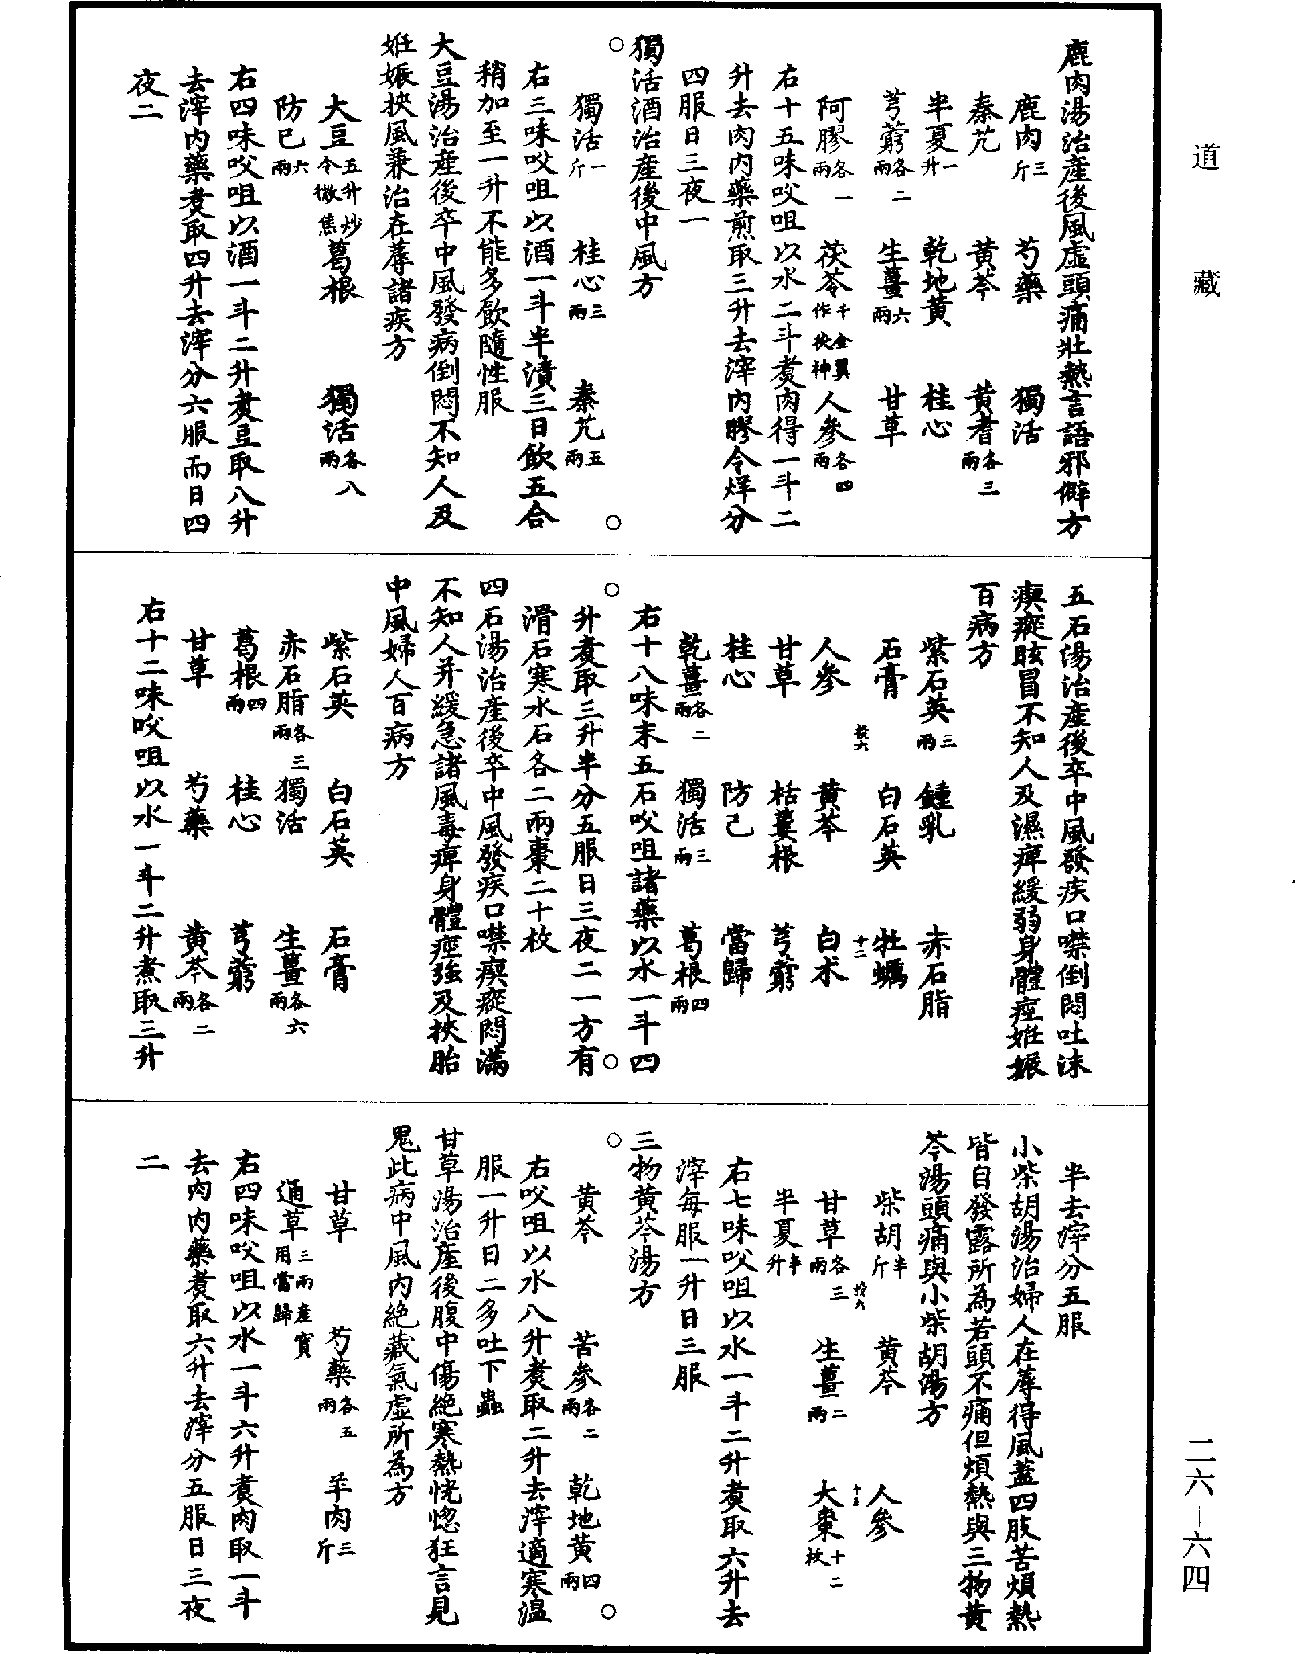 道藏
鹿肉湯治產後風虛頭痛壯熱言語邪僻方
鹿肉三斤 芍藥 獨活
秦艽 黃芩 黃耆各三兩
半夏一升 乾地黃 桂心
芎藭各二兩 生薑六兩 甘草
阿膠各一兩 茯苓千金翼作茯神 人參各四兩
右十五味㕮咀以水二斗煑肉得一斗二
升去肉內藥煎取三升去滓內膠令烊分
四服日三夜一
獨活酒治產後中風方
獨活一斤 桂心三兩 秦艽五兩
右三味㕮咀以酒一斗半漬三日飲五合
稍加至一升不能多飲隨性服
大豆湯治產後卒中風發病倒悶不知人及
姙娠挾風兼治在蓐諸疾方
大豆五升炒令微焦 葛根 獨活各八兩
防己六兩
右四味㕮咀以酒一斗二升煑豆取八升
去滓內藥煑取四升去滓分六服而日四
夜二
五石湯治產後卒中風發疾口噤倒悶吐沫
瘈瘲眩冒不知人及濕痺緩弱身體痙姙娠
百病方
紫石英三兩 鍾乳 赤石脂
石膏 白石英 牡蠣
人參 黃芩 白朮
甘草 栝蔞根 芎藭
桂心 防己 當歸
乾薑各二兩 獨活三兩 葛根四兩
右十八味末五石㕮咀諸藥以水一斗四
升煑取三升半分五服日三夜二一方有
滑石寒水石各二兩棗二十枚
四石湯治產後卒中風發疾口噤瘈瘲悶滿
不知人并緩急諸風毒痺身體痙强及挾胎
中風婦人百病方
紫石英 白石英 石膏
赤石脂各三兩 獨活 生薑各六兩
葛根四兩 桂心 芎藭
甘草 芍藥 黃芩各二兩
右十二味㕮咀以水一斗二升煮取三升
半去滓分五服
小柴胡湯治婦人在蓐得風蓋四肢苦煩熱
皆自發露所為若頭不痛但煩熱與三物黃
芩湯頭痛與小柴胡湯方
柴胡半斤 黃芩 人參
甘草各三兩 生薑二兩 大棗十二枚
半夏半升
右七味㕮咀以水一斗二升煑取六升去
滓每服一升日三服
三物黃芩湯方
黃芩 苦參各二兩 乾地黃四兩
右㕮咀以水八升煑取二升去滓適寒溫
服一升日二多吐下蟲
甘草湯治產後腹中傷絕寒熱恍惚狂言見
鬼此病中風內絕藏氣虛所為方
甘草 芍藥各五兩 羊肉三斤
通草三兩產寶用當歸
右四味㕮咀以水一斗六升煑肉取一斗
去肉內藥煑取六升去滓分五服日三夜
二
二六－六四